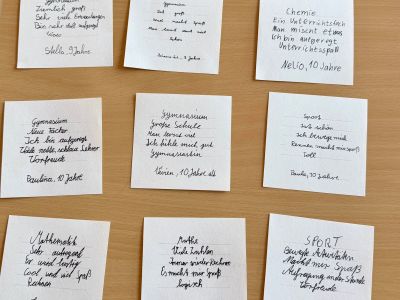 Gymnasium
Ziemlich groß
Sehr viele Erwartungen
Bin sehr aufgeregt
Stella, 9 Jahre
Gymnasium
groß
Chemie
Ein Unterrichtsfach
Man mischt etwas
Ich bin aufgeregt
Unterrichtsspaß
Nelio, 10 Jahre
Gymnasium
Neue Fächer
Ich bin aufgeregt
Viele nette, schlaue Lehrer
Vorfreude
Paulina, 10 Jahre
Gymnasium
Große Schule
Man lernt viel
Ich fühle mich gut
Gymnasiasten
10 Jahre alt
Sport
Ist schön
Ich bewege mich
Rennen macht mir Spaß
Toll
Paula, 10 Jahre
Mathematik
Sehr aufregend
Er wird lustig
Cool und viel Spaß
Rechnen
Mathe
Viele Zahlen
Immer wieder Rechnen
Es macht mir Spaß
logisch
SPORT
Bewegte Aktivitäten
Macht mir Spaß
Aufregung in der Stunde
Vorfreude